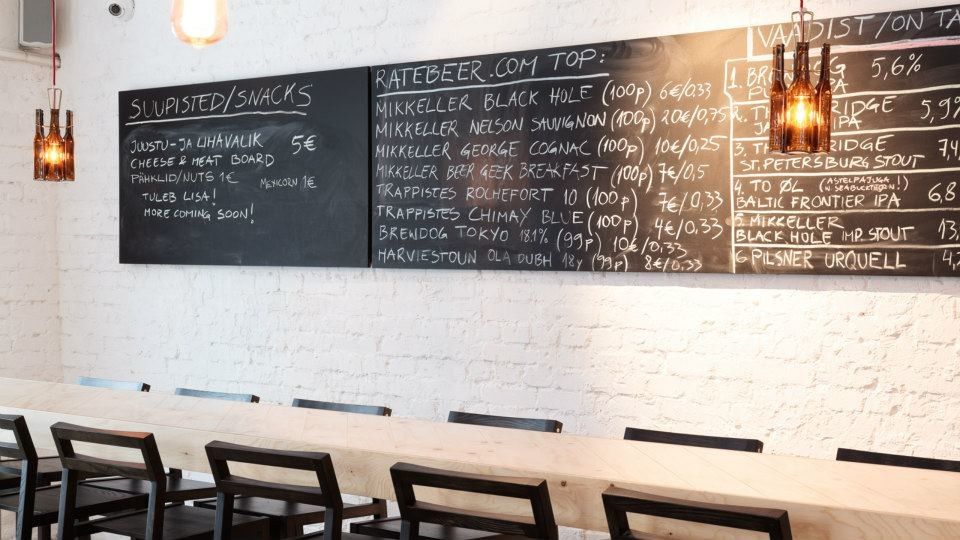 SUUPISTED/SNACKS
JUUSTU- JA LIHAVALIK 5€
CHEESE & MEAT BOARD
PÄHKLID/NUTS 1€ MEXICORN 1€
TULEB LISA!
MORE COMING SOON!
RATEBEER.COM TOP:
MIKKELLER BLACK HOLE (100p) 6€/0,33
MIKKELLER NELSON SAUVIGNON (100p) 20€/0,75
MIKKELLER GEORGE COGNAC (100p) 10€/0,25
MIKKELLER BEER GEEK BREAKFAST (100p) 7€/0,5
TRAPPISTES ROCHEFORT 10 (100p) 7€/0,33
TRAPPISTES CHIMAY BLUE (100p) 4€/0,33
BREWDOG TOKYO 18.1% (99p) 10€/0,33
HARVIESTOUN OLA DUBH 18y (99p) 8€/0,33
VAADIST/ON TA
1. 5,6%
2. IPA 5,9%
3. ST. PETERSBURG STOUT 7,4
4. TO ØL (ASTELPAJUGA!
BALTIC FRONTIER IPA 6,8
5. MIKKELLER
BLACK HOLE IMP. STOUT 13,
6 PILSNER URQUELL 4,